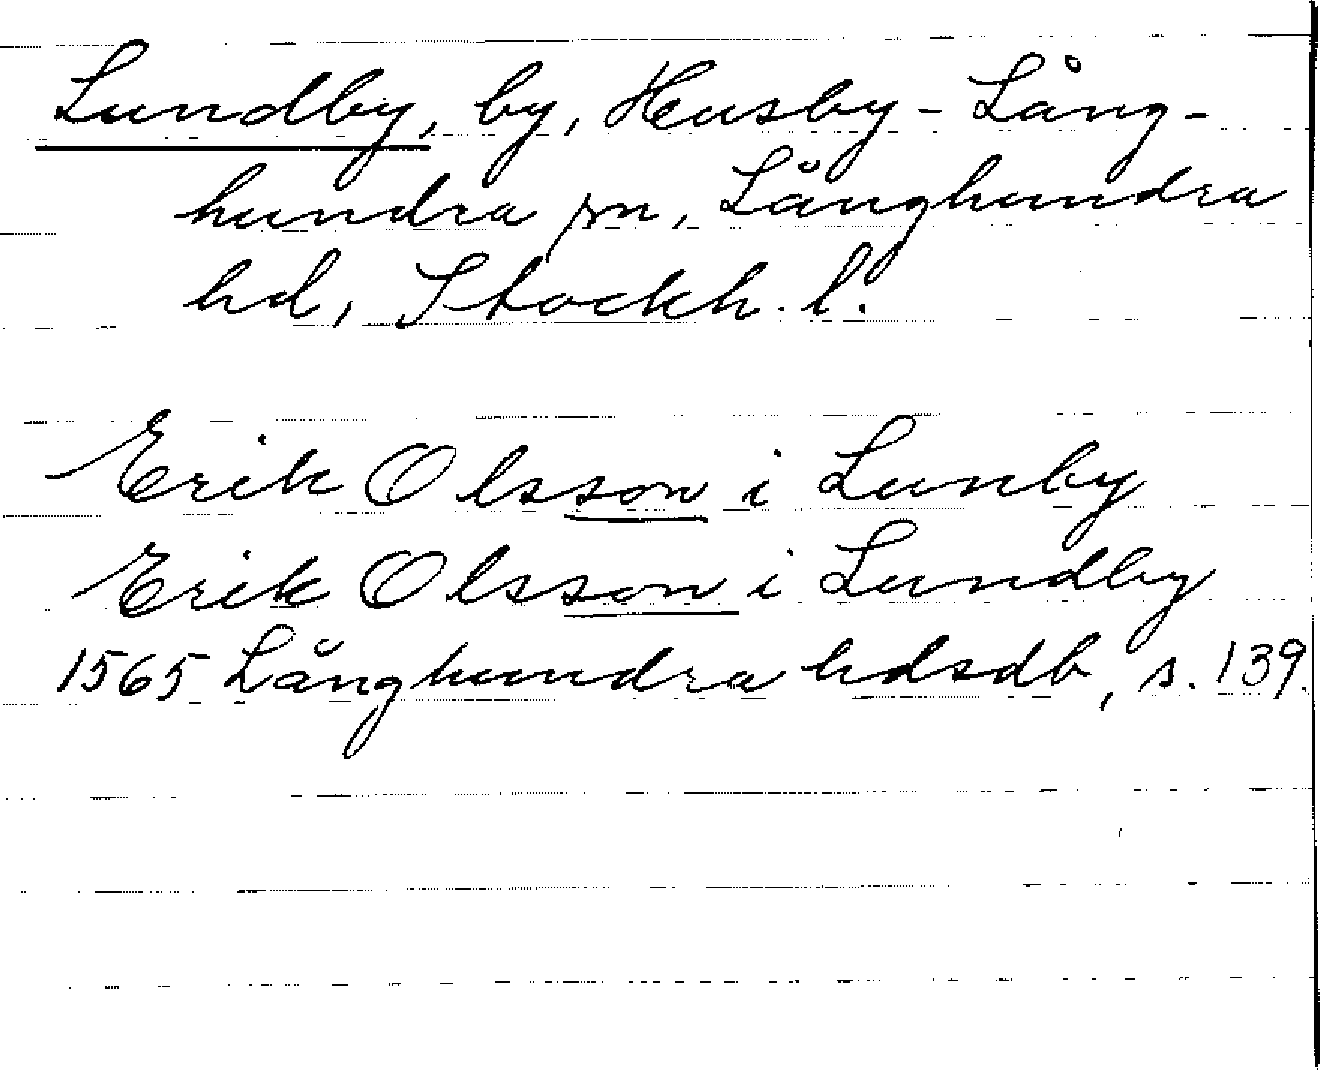 Lundby, by, Husby-Lång-
hundra sn, Långhundra
hd, Stockh. l.
Erik Olsson i Lunby
Erik Olsson i Lundby
1565 Långhundra hdsdb, s. 139.